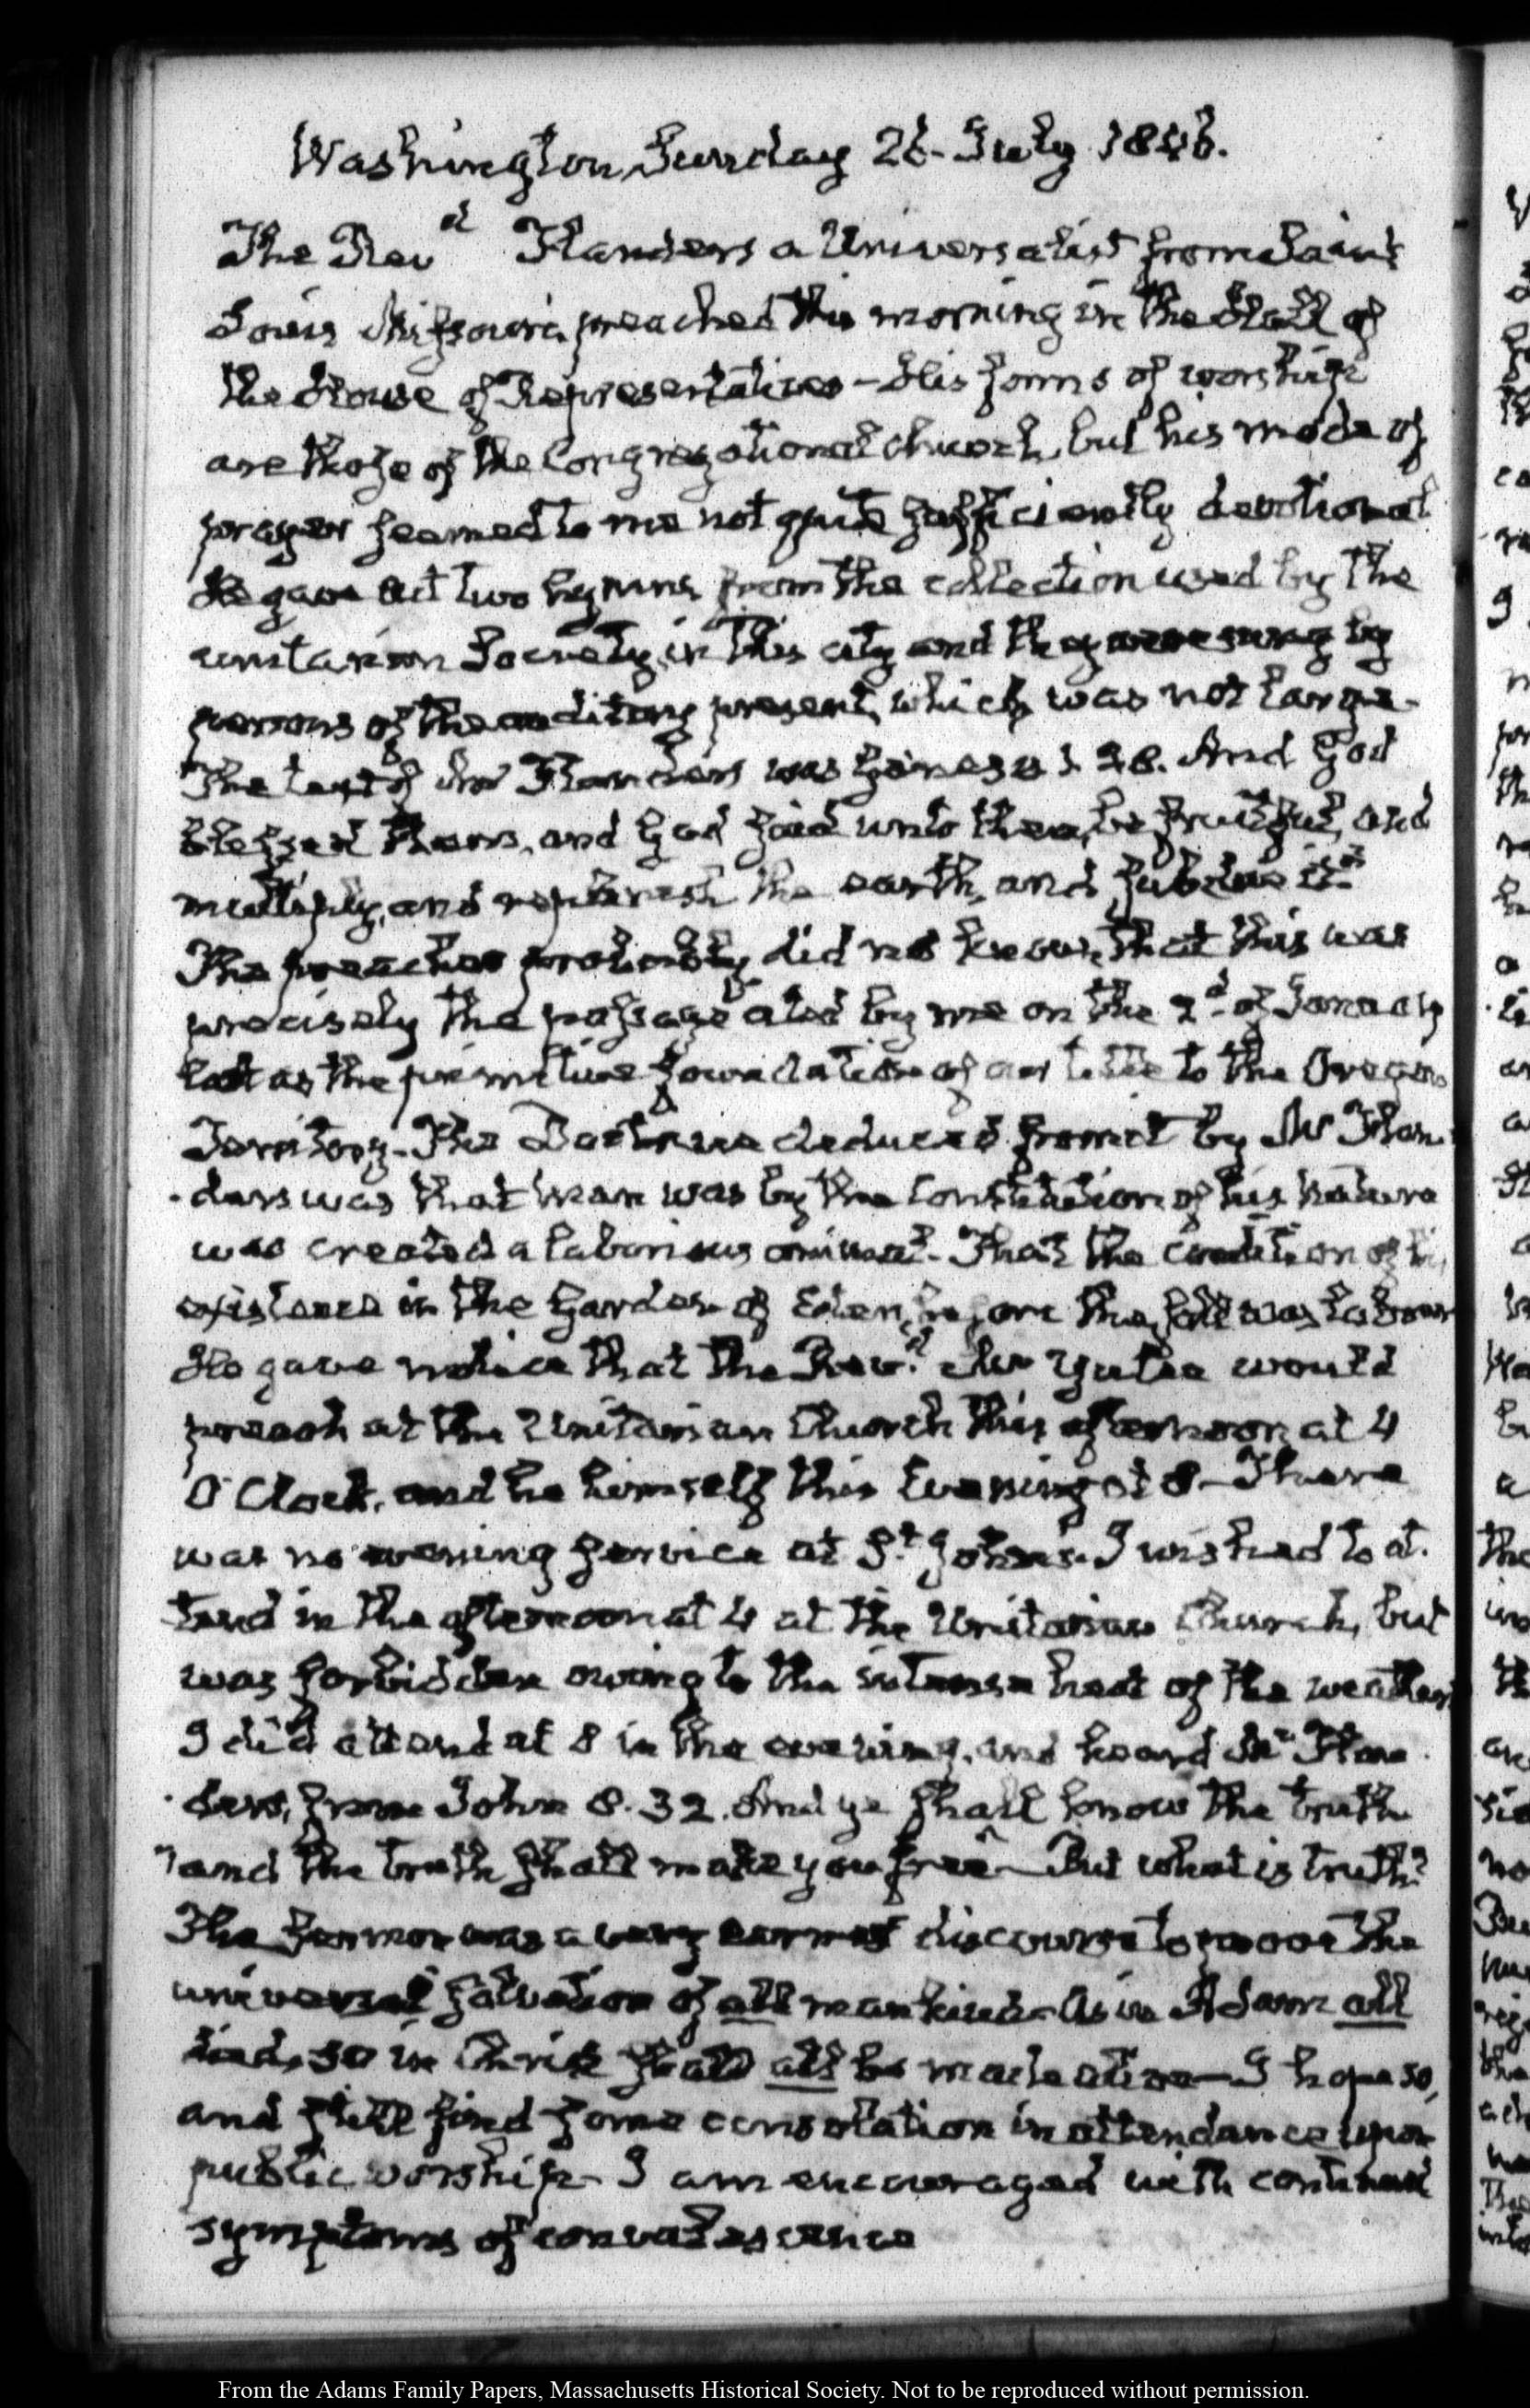 Washington, Sunday 26. July 1846.
The Revd Flanders a Universalist from Saint
Louis Missouri, preached this morning in the Hall of
the House of Representatives – His forms of worship
are those of the Congregational church, but his mode of
prayer seemed to me not quite sufficiently devotional
He gave out two hymns from the collection used by the
unitarian Society in this city and they were sung by
persons of the auditory present, which was not large.
The text of Mr Flanders was Genesis 1 28. And God
blessed them, and God said unto them, be fruitful, and
multiply, and replenish the earth, and subdue it"
The preacher probably did not know, that this was
precisely the passage cited by me on the 2d of January
last as the primitive foundation of our title to the Oregon
Territory – The Doctrine deduced from it by Mr Flan-
-ders was that man was by the Constitution of his nature
was created a laborious animal. That the condition of his
existence in the Garden of Eden, before the fall was labour
He gave notice that the Revd. Mr Yulee would
preach at the Unitarian Church this afternoon at 4
O'Clock, and he himself this Evening at 8 – There
was no evening service at St. John's. I wished to at-
tend in the afternoon at 4 at the Unitarian Church, but
was forbidden owing to the intense heat of the weather
I did attend at 8 in the evening, and heard Mr Flan-
-ders, from John 8. 32. And ye shall know the truth
"and the truth shall make you free" – But what is truth?
The Sermon was a very earnest discourse to prove the
universal salvation of all mankind – As in Adam all
died, so in Christ shall all be made alive – I hope so,
and still find some consolation in attendance upon
public worship – I am encouraged with continued
symptoms of convalescence
From the Adams Family Papers, Massachusetts Historical Society. Not to be reproduced without permission.